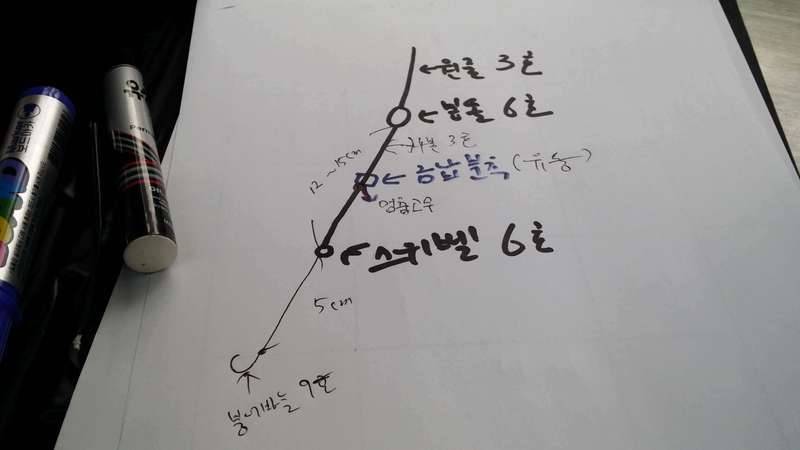 원줄 3호
봉돌 6호
카본 3호
12~15cm
금납분착 (유동)
멈춤고무
스위벨 6호
5cm
붕어바늘 9호